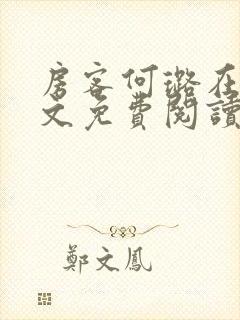 房客何璐在
文免費閱讀
鄭文鳳